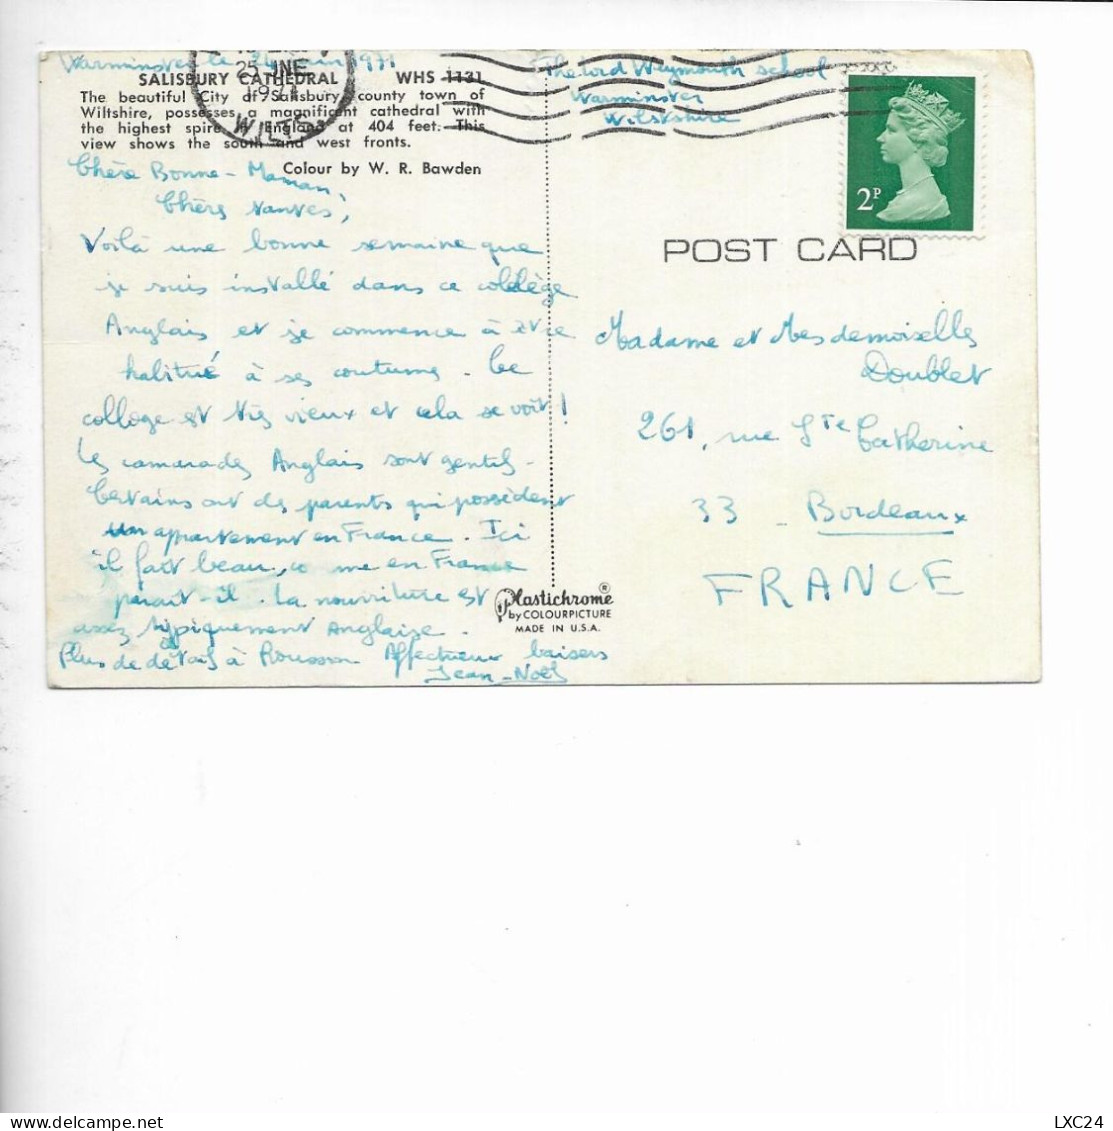 Warminster le 24 juin 1971
25 JNE
1971
WILTS
SALISBURY CATHEDRAL WHS 1131
The beautiful City of Salisbury, county town of
Wiltshire, possesses a magnificent cathedral with
the highest spire in England at 404 feet. This
view shows the south and west fronts.
Colour by W. R. Bawden
Chère Bonne-Maman,
Chères tantes,
Voilà une bonne semaine que
je suis installé dans ce collège
Anglais et je commence à être
habitué à ses coutumes. Le
collège est très vieux et cela se voit!
Les camarades Anglais sont gentils-
Certains ont des parents qui possèdent
un appartement en France. Ici
il fait beau, co me en France
parait-il. La nourriture est
assez typiquement Anglaise.
Plus de détails à Rousson Affectueux baisers
Jean-Noël
The lord Weymouth school
Warminster
Wilstshire
2P
POST CARD
Madame et Mesdemoiselles
Doublet
261, rue Ste Catherine
33 - Bordeaux
FRANCE
Plastichrome ®
by COLOURPICTURE
MADE IN U.S.A.
LXC24